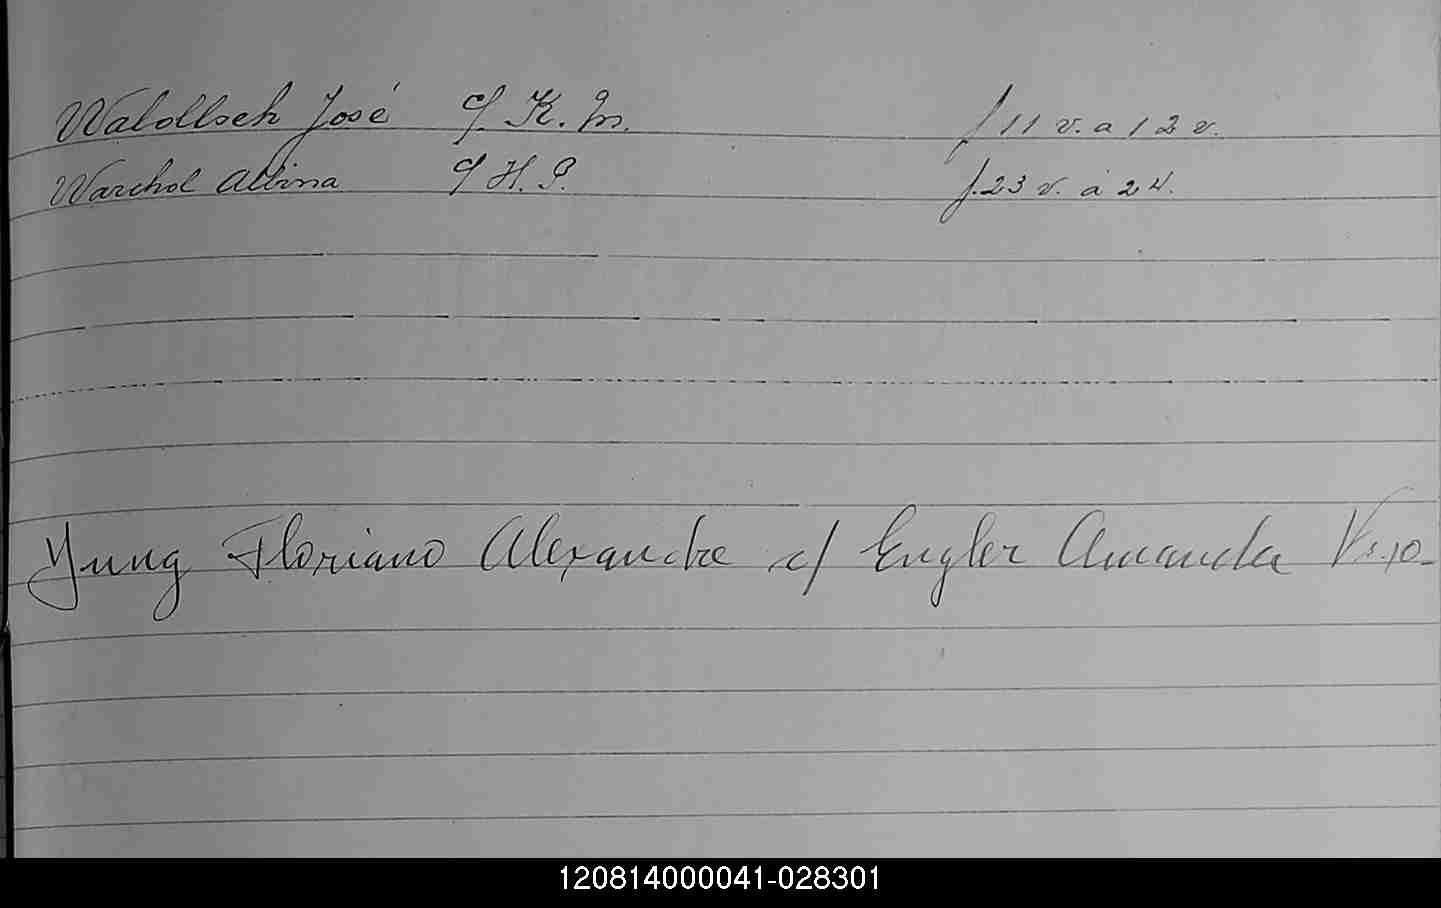 Waldllsch José c/ K. M. f 11 v. a 12 v.
Warchol Albina c/ H. P. f. 23 v. a 24.
Yung Floriano Alexandre c/ Engler Amanda
120814000041-028301